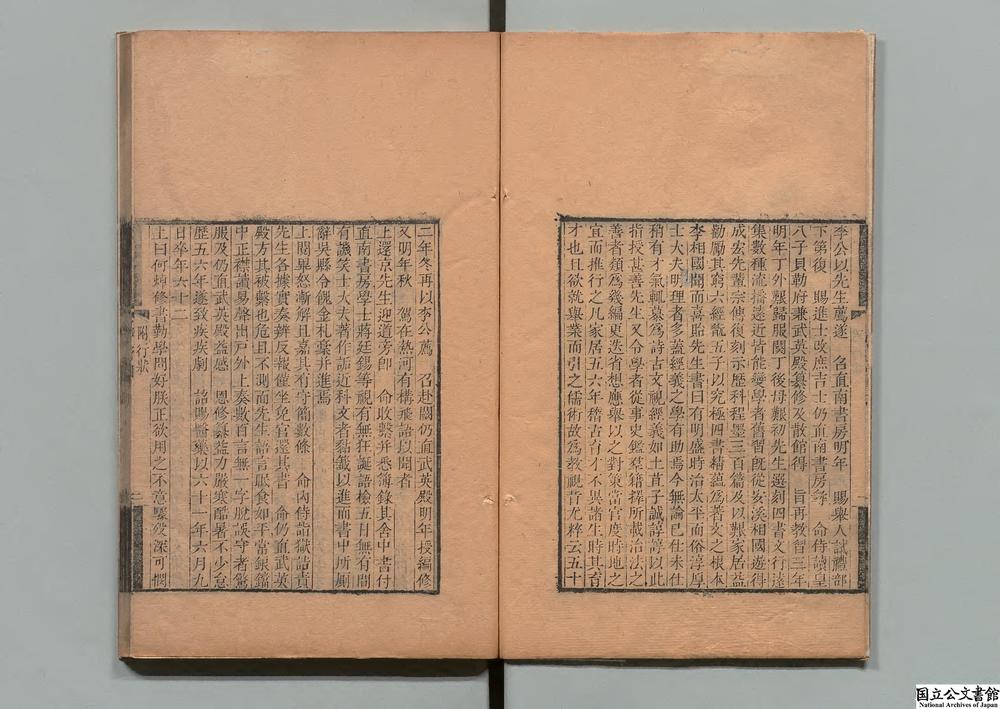 李公以先生薦遂 召直南書房明年 賜舉人試禮部
下第復 賜進士改庶吉士仍直南書房尋 命侍讀皇
八子貝勒府兼武英殿纂修及散館得 旨再教習三年
明年丁外艱歸服闋丁後母艱初先生選刻四書文行遠
集數種流播遠近皆能變學者舊習既從安溪相國遊得
成宏先輩宗傳復刻示歷科程墨三百篇及以艱家居益
勸勵其窮六經甄五子以究極四書精蘊為著文之根本
李相國聞而喜貽先生書曰有明盛時治太平而俗淳厚
士大夫明理者多蓋經義之學有助焉今無論已仕未仕
稍有才氣輒慕為詩古文視經義如土苴子誠諄諄以此
指授甚善先生又令學者從事史鑑羣籍擇所載治法之
善者類為幾編更迭省想應舉以之對策當官度時地之
宜而推行之凡家居五六年稽古育才不異諸生時其育
才也且欲就舉業而引之儒術故為教視昔尤粹云五十
二年冬再以李公薦 召赴闕仍直武英殿明年授編修
又明年秋 駕在熱河有構飛語以聞者
上還京先生迎道旁即 命收繫并悉簿錄其舍中書付
直南書房學士蔣廷錫等視有無狂誕語檢五日無有間
有譏笑士大夫著作詭近科文者黏籤以進而書中所廁
辭吳縣令餽金札稾并進焉
上閱畢怒漸解且嘉其有守簡數條 命內侍詣獄詰責
先生各據實奏辨反報僅坐免官還其書 命仍直武英
殿方其被繫也危且不測而先生語言眠食如平當銀鐺
中正襟讀易聲出戶外上奏數百言無一字脫誤守者驚
服及仍直武英殿益感 恩修纂益力嚴寒酷暑不少怠
歷五六年遂致疾疾劇 詔賜醫藥以六十一年六月九
日卒年六十二
上曰何焯修書勤學問好朕正欲用之不意驟歿深可憫
附行狀
二